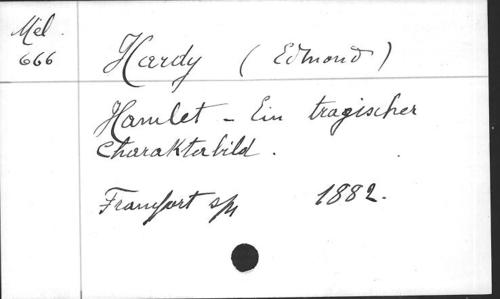 Mél.
666
Hardy (Edmond)
Hamlet - Ein tragischer
Charakterbild.
Francfort s/M 1882.